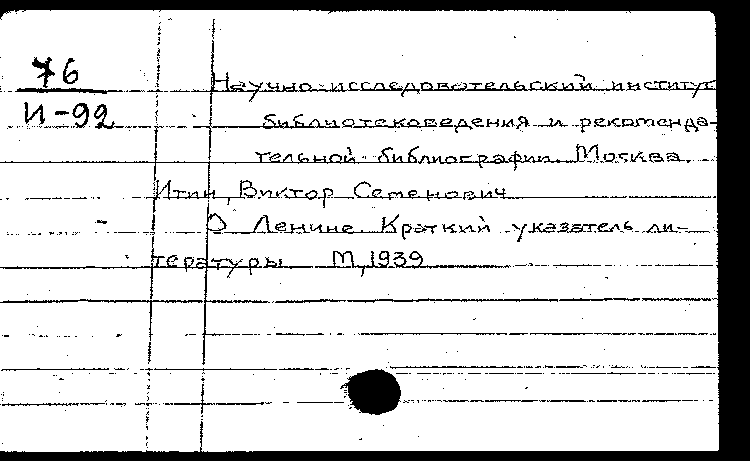 76
И-92
Научно-исследовательский институт
библиотековедения и рекоменда-
тельной библиографии. Москва.
Итин, Виктор Семенович
О Ленине. Краткий указатель ли-
тературы М, 1939